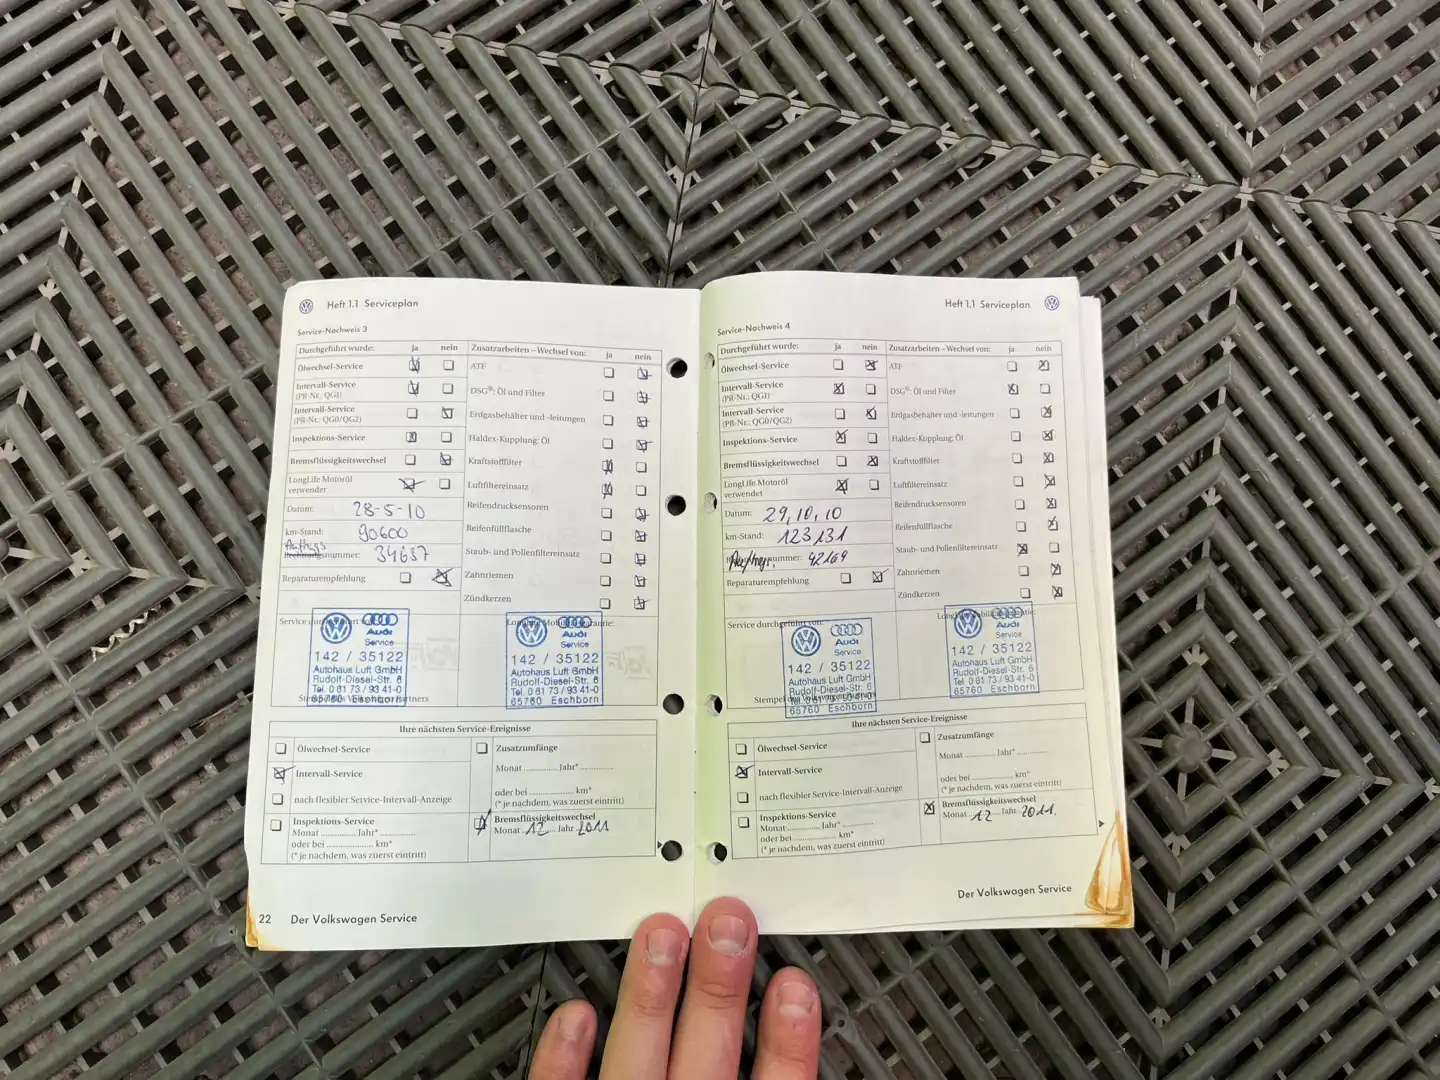 Heft 1.1 Serviceplan
Service-Nachweis 3
Durchgeführt wurde: ja nein
Ölwechsel-Service
Intervall-Service
(PR-Nr.: QG1)
Intervall-Service
(PR-Nr.: QG0/QG2)
Inspektions-Service
Bremsflüssigkeitswechsel
LongLife Motoröl
verwendet
Datum: 28-5-10
km-Stand: 90600
Auftrags
nummer: 34637
Reparaturempfehlung
Zusatzarbeiten – Wechsel von: ja nein
ATF
DSG®: Öl und Filter
Erdgasbehälter und -leitungen
Haldex-Kupplung: Öl
Kraftstofffilter
Luftfiltereinsatz
Reifendrucksensoren
Reifenfüllflasche
Staub- und Pollenfiltereinsatz
Zahnriemen
Zündkerzen
Service durchgeführt von:
Audi
Service
142 / 35122
Autohaus Luft GmbH
Rudolf-Diesel-Str. 6
Tel. 0 61 73 / 93 41-0
65760 Eschborn
LongLife Mobilitätsgarantie:
Audi
Service
142 / 35122
Autohaus Luft GmbH
Rudolf-Diesel-Str. 6
Tel. 0 61 73 / 93 41-0
65760 Eschborn
Ihre nächsten Service-Ereignisse
Ölwechsel-Service
Intervall-Service
nach flexibler Service-Intervall-Anzeige
Inspektions-Service
Monat ............ Jahr* ............
oder bei .................. km*
(* je nachdem, was zuerst eintritt)
Zusatzumfänge
Monat ............ Jahr* ............
oder bei .................. km*
(* je nachdem, was zuerst eintritt)
Bremsflüssigkeitswechsel
Monat 12 Jahr 2011
22 Der Volkswagen Service
Heft 1.1 Serviceplan
Service-Nachweis 4
Durchgeführt wurde: ja nein
Ölwechsel-Service
Intervall-Service
(PR-Nr.: QG1)
Intervall-Service
(PR-Nr.: QG0/QG2)
Inspektions-Service
Bremsflüssigkeitswechsel
LongLife Motoröl
verwendet
Datum: 29.10.10
km-Stand: 123131
nummer: 42169
Reparaturempfehlung
Zusatzarbeiten – Wechsel von: ja nein
ATF
DSG®: Öl und Filter
Erdgasbehälter und -leitungen
Haldex-Kupplung: Öl
Kraftstofffilter
Luftfiltereinsatz
Reifendrucksensoren
Reifenfüllflasche
Staub- und Pollenfiltereinsatz
Zahnriemen
Zündkerzen
Service durchgeführt von:
Audi
Service
142 / 35122
Autohaus Luft GmbH
Rudolf-Diesel-Str. 6
Tel. 0 61 73 / 93 41-0
65760 Eschborn
LongLife Mobilitätsgarantie:
Audi
Service
142 / 35122
Autohaus Luft GmbH
Rudolf-Diesel-Str. 6
Tel. 0 61 73 / 93 41-0
65760 Eschborn
Ihre nächsten Service-Ereignisse
Ölwechsel-Service
Intervall-Service
nach flexibler Service-Intervall-Anzeige
Inspektions-Service
Monat ............ Jahr* ............
oder bei .................. km*
(* je nachdem, was zuerst eintritt)
Zusatzumfänge
Monat ............ Jahr* ............
oder bei .................. km*
(* je nachdem, was zuerst eintritt)
Bremsflüssigkeitswechsel
Monat 12 Jahr 2011.
Der Volkswagen Service